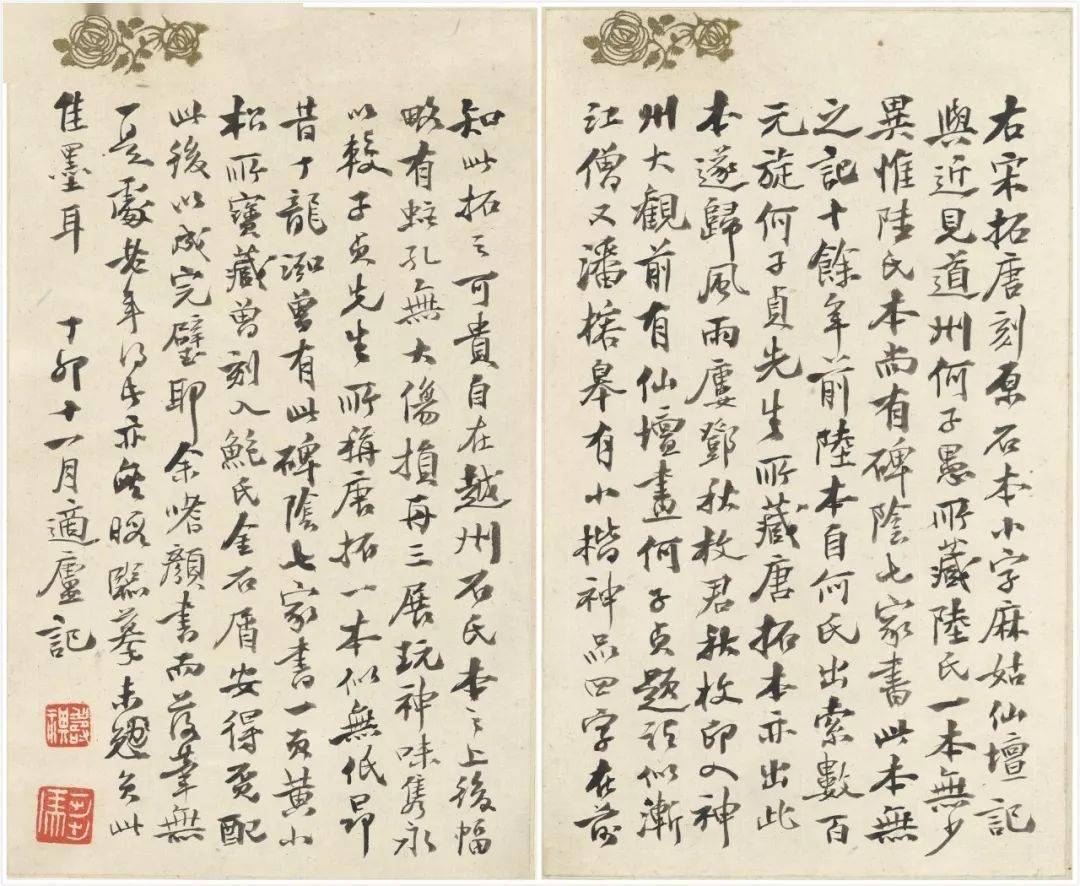 右宋拓唐刻原石本小字麻姑仙壇記
與近見道州何子愚所藏陸氏一本無少
異惟陸氏本尚有碑陰七家書此本無
之記十餘年前陸本自何氏出索數百
元旋何子貞先生所藏唐拓本亦出此
本遂歸風雨廔鄧秋枚君秋枚印入神
州大觀前有仙壇畫何子貞題語似漸
江僧又潘榕皋有小楷神品四字在前
知此拓之可貴自在越州石氏本之上後幅
略有蛀孔無大傷損再三展玩神味雋永
以較子貞先生所稱唐拓一本似無低昂
昔丁龍泓曾有此碑陰七家書一頁黃小
松所寶藏曾刻入鮑氏金石屑安得覓配
此後以成完璧耶余嗜顏書而落筆無
一是處老年得此亦能暇臨摹未免負此
佳墨耳 丁卯十一月適廬記